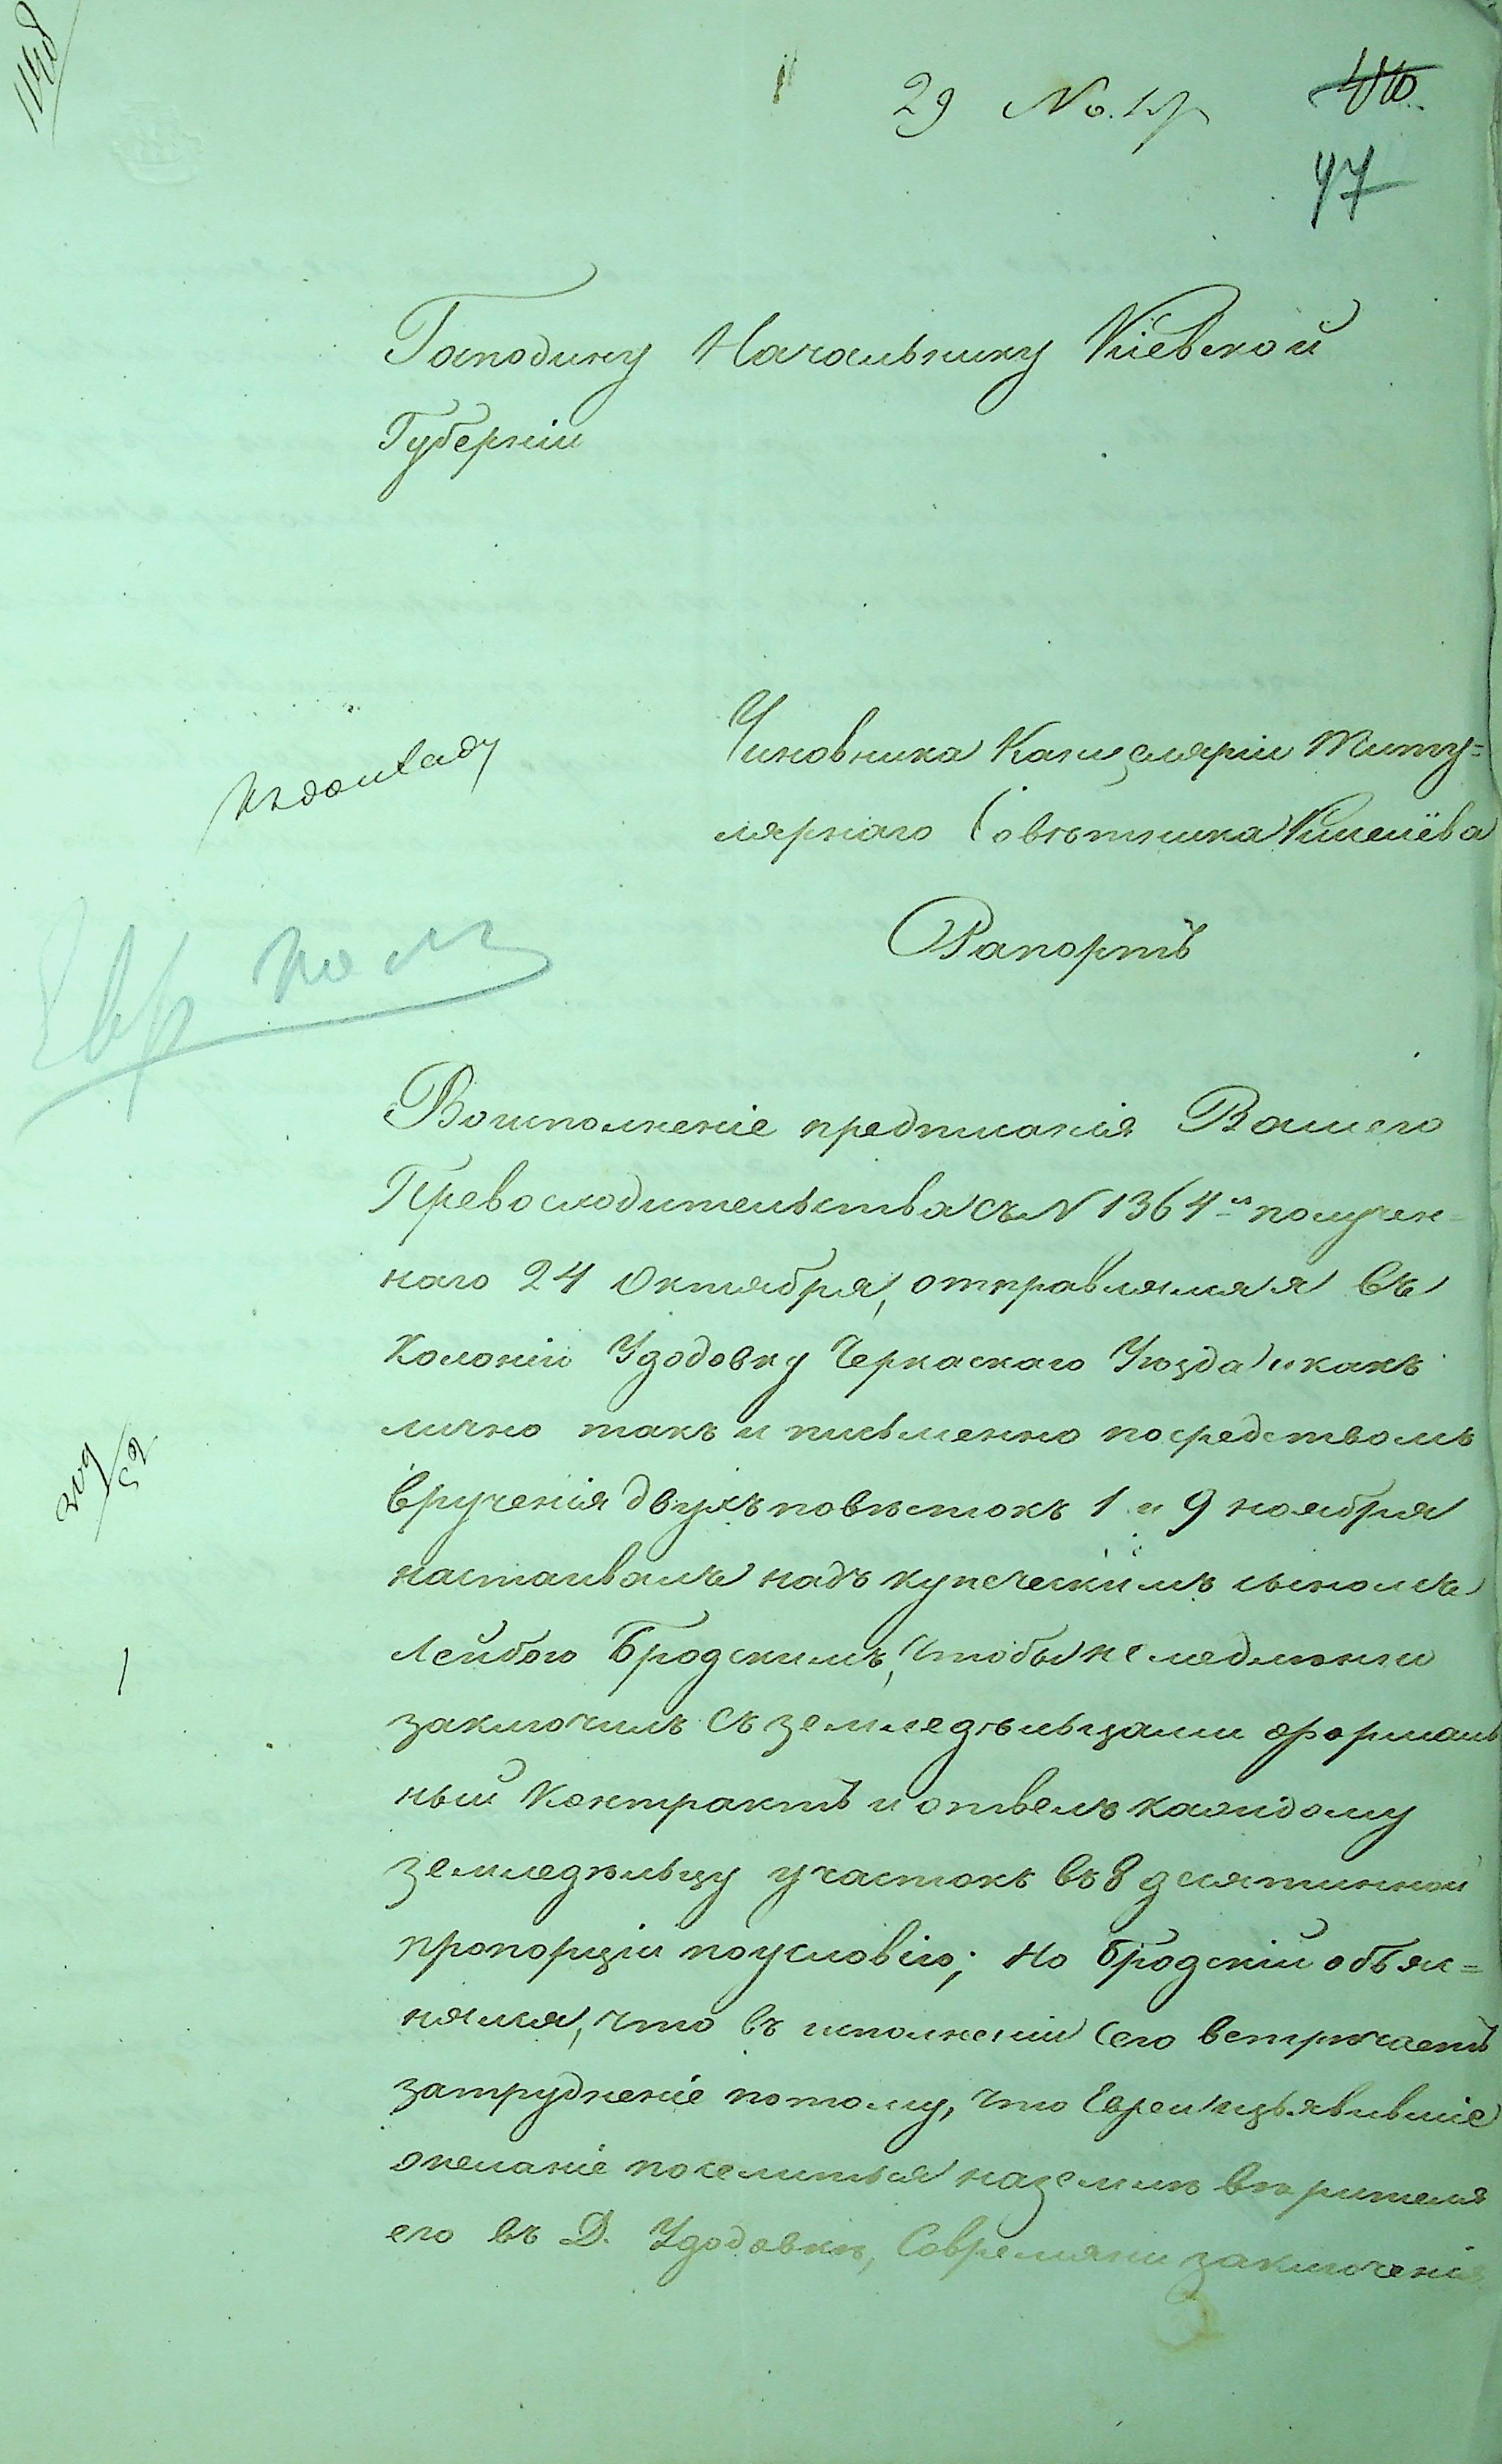 29 No.
47
Господину Начальнику Кіевской
Губерніи
Къ докладу
Чиновника Канцеляріи Титу=
лярнаго Совѣтника Киселёва
Рапортъ
Евр
Воисполненіе предписанія Вашего
Превосходительства съ N 1364 получен=
наго 24 Октября, отправлялся я въ
Колонію Удодовку Черкаскаго Уѣзда и какъ
лично такъ и письменно посредствомъ
врученія двухъ повѣстокъ 1 и 9 ноября
настаивалъ надъ купеческимъ сыномъ
Лейбою Бродскимъ, чтобы не медлѣнно
заключилъ съ земледѣльцами формаль
ный Контрактъ и отвелъ каждому
земледѣльцу участокъ въ 8 десятинной
пропорціи поусловію; но Бродскій объяс=
нялся, что въ исполненіи сего встрѣчаетъ
затрудненіе потому, что Евреи изъявившіе
желаніе поселиться наземлѣ вѣрителя
его въ Д. Удодовкѣ, Совремяни заключенія